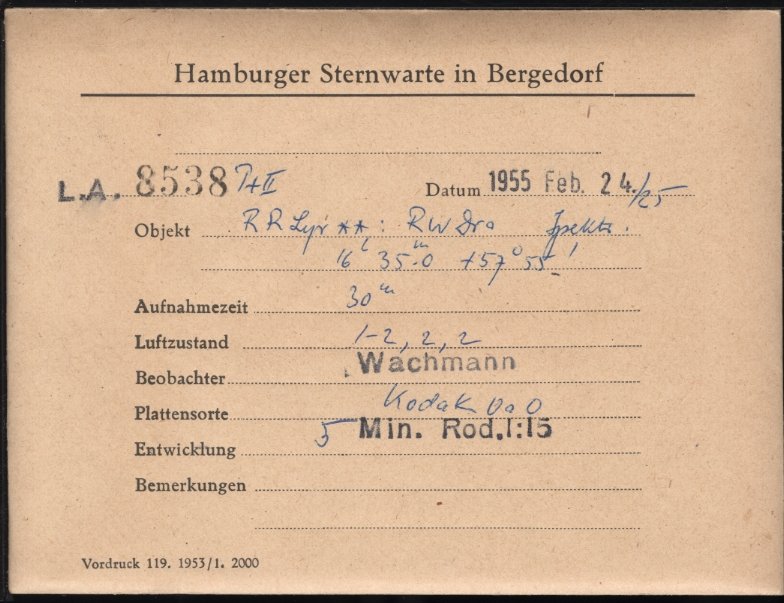 Hamburger Sternwarte in Bergedorf
L.A. 8538 I+II Datum 1955 Feb. 24./25
Objekt RR Lyr **: RW Dra Spektr.
16h 35m.0 +57° 55'
Aufnahmezeit 30m
Luftzustand 1-2, 2, 2
Beobachter Wachmann
Plattensorte Kodak 0a0
Entwicklung 5 Min. Rod.1:15
Bemerkungen
Vordruck 119. 1953/1. 2000